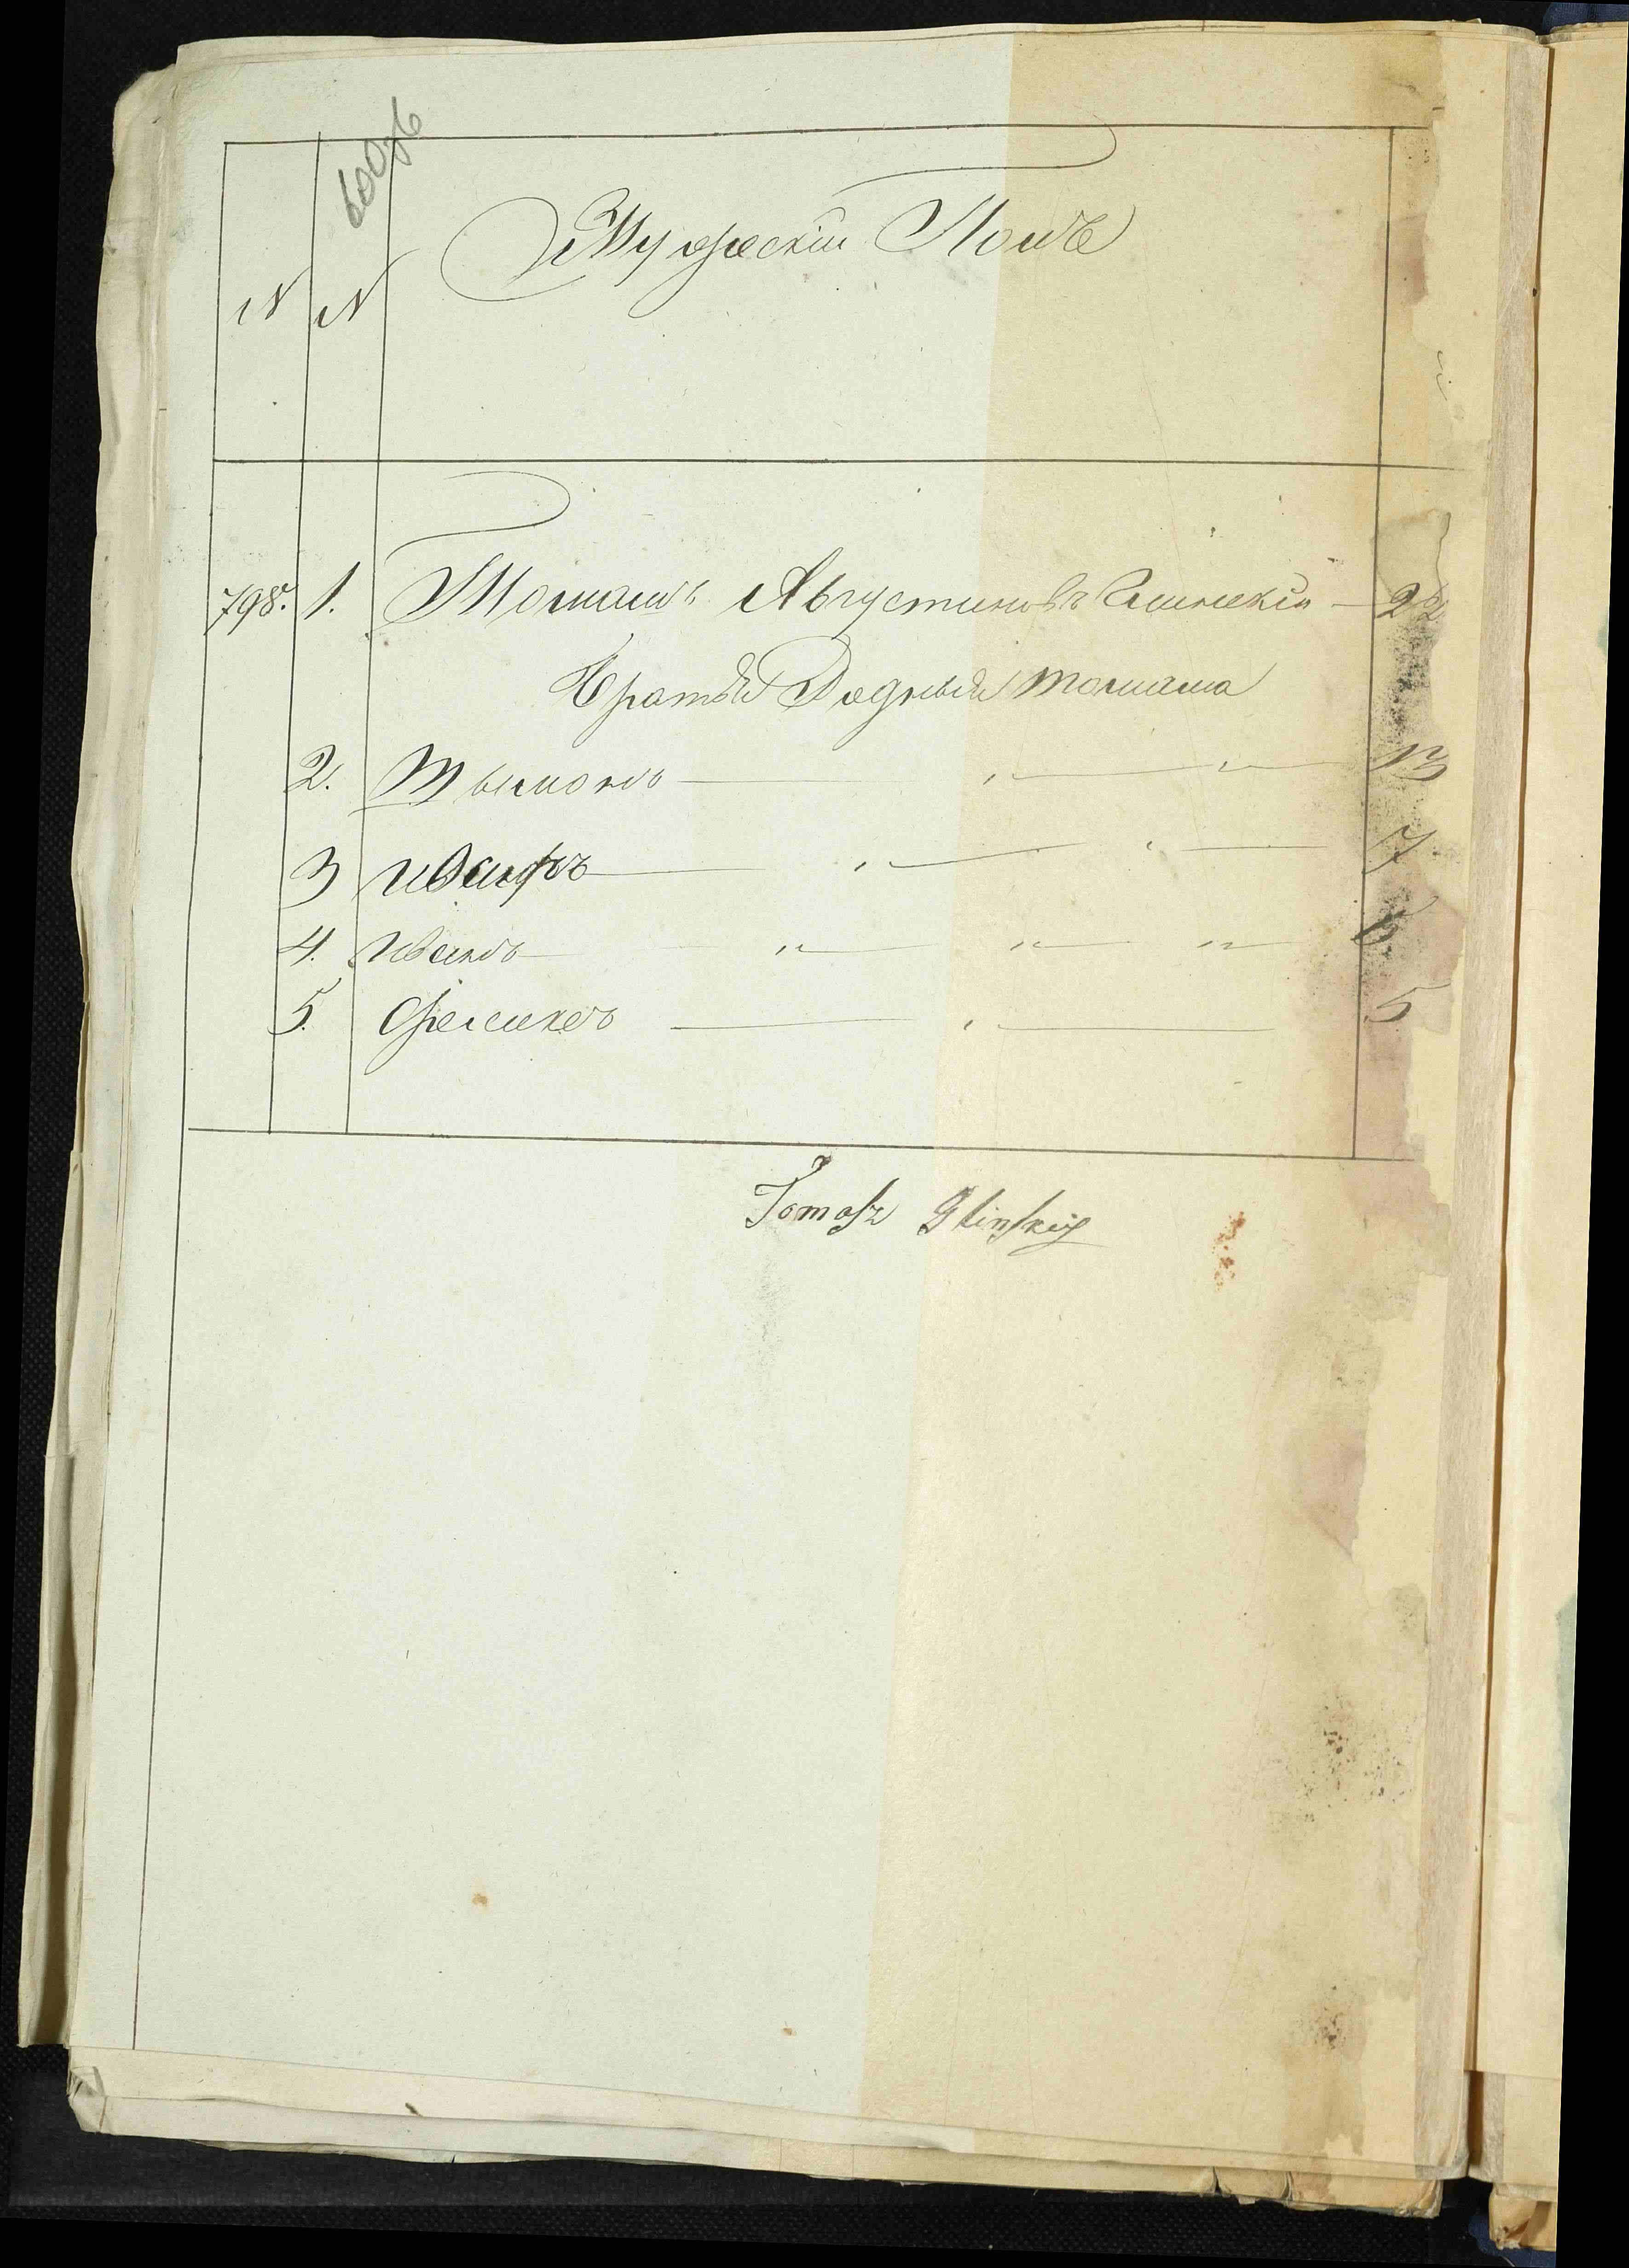 600об
N N Мужескій Полъ
798. 1. Томашъ Августиновъ Глинскій — 22
Братья Родныя томаша
2. Тымонъ — „ — „ — 13
3 — „ — „ — 7
4. Иванъ — „ — „ — „ — 6
5. Феликсъ — „ — 5
Tomasz Glinskiy